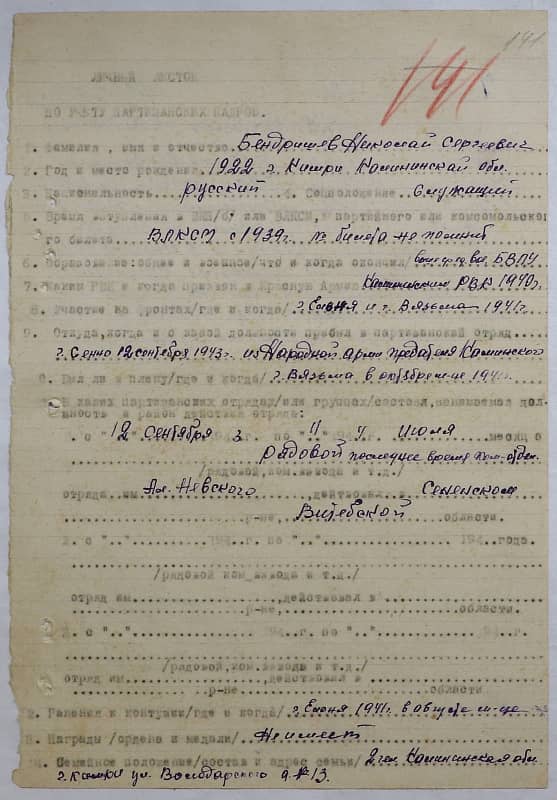 141
141
ЛИЧНЫЙ ЛИСТОК
ПО УЧЕТУ ПАРТИЗАНСКИХ КАДРОВ.
1. Фамилия, имя и отчество Бендришев Николай Сергеевич
2. Год и место рождения 1922 г. Кимри Калининской обл.
3. Национальность русский 4. Соцположение служащий
5. Время вступления в ВКП/б/ или ВЛКСМ, № партейного или комсомольско-
го билета ВЛКСМ с 1939г. № билета не помнит
6. Образование: общее и военное/что и когда окончил/ БВПУ
7. Каким РВК и когда призван в Красную Армию Калининским РВК 1940г.
8. Участие на фронтах/где и когда/ г. Ельня и г. Вязьма 1941г.
9. Откуда, когда и с какой должности прибыл в партизанский отряд....
г. Сенно 12 сентября 1943г. из Народной армии предателя Каминского
Был ли в плену/где и когда/ г. Вязьма в октябре м-це 1941г.
В каких партизанских отрядах/или группах/состоял, занимаемая дол-
жность и район действия отряда:
с "12 сентября 3 г. по "11" 4 Июля месяц
рядовой последнее время ком. отдел.
/рядовой, ком.взвода и т.д./
отряд им. Ал. Невского, действовал в Сененском
р-не, Витебской области.
2. с "..".........194..г. по "..".........194..года.
/рядовой ком.взвода и т.д./
отряд им..............,действовал в
р-не..............области.
3. с "..".........194..г. по "..".........194..г.
/рядовой, ком.взвода и т.д./
отряд им..............,действовал в
р-не..............области
2. Ранения и контузии/где и когда/ г. Ельня 1941г. в августе м-це
3. Награды /ордена и медали/ Не имеет
4. Семейное положение/состав и адрес семьи/ 2 чел. Калининская обл
г. Кимри ул. Володарского д. № 13.